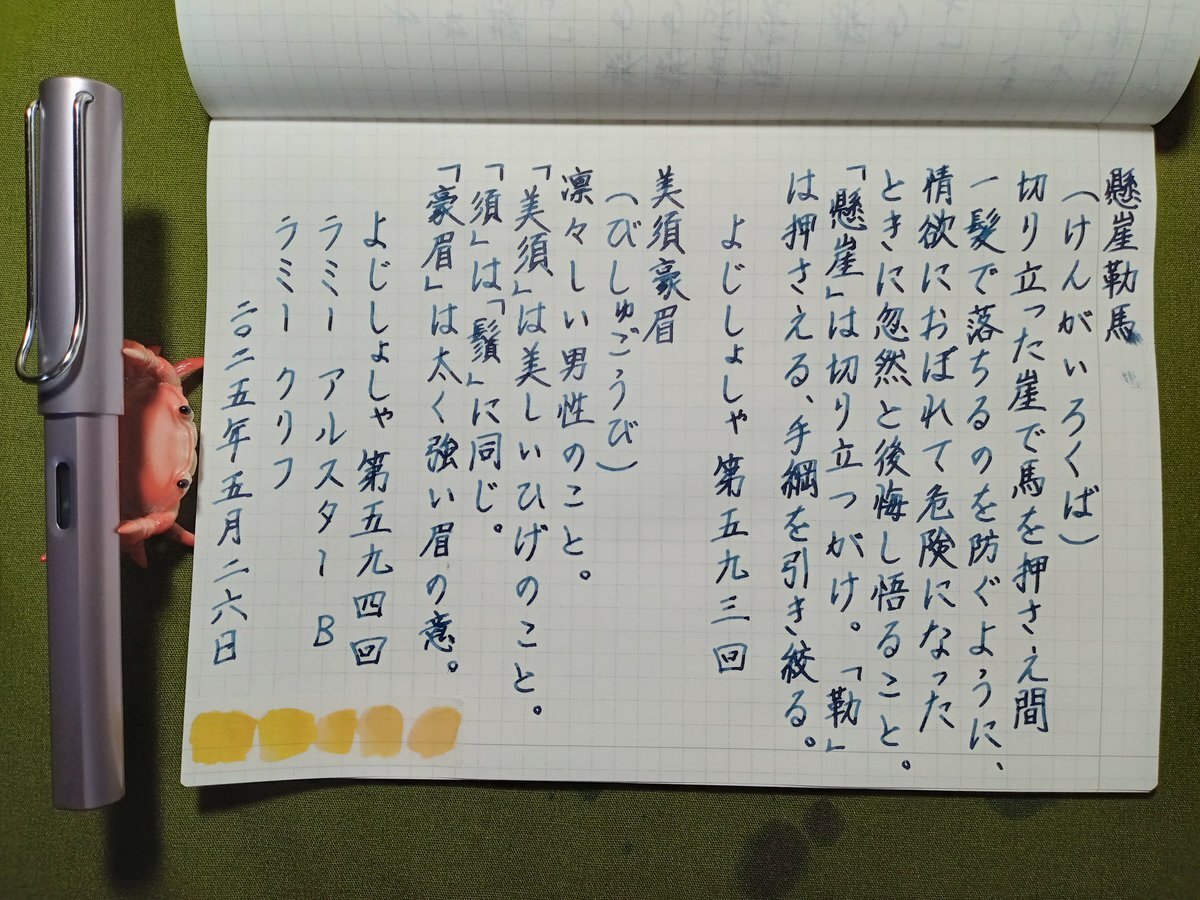 懸崖勒馬
（けんがいろくば）
切り立った崖で馬を押さえ間
一髪で落ちるのを防ぐように、
情欲におぼれて危険になった
ときに忽然と後悔し悟ること。
「懸崖」は切り立つがけ。「勒」
は押さえる、手綱を引き絞る。
よじしょしゃ 第五九三回
美須豪眉
（びしゅごうび）
凛々しい男性のこと。
「美須」は美しいひげのこと。
「須」は「鬚」に同じ。
「豪眉」は太く強い眉の意。
よじしょしゃ 第五九四回
ラミー アルスター B
ラミー クリフ
二〇二五年五月二六日